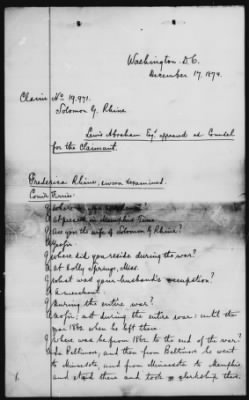 Washington D.C.
December 17, 1874.
Claim No. 19,971.
Solomon G. Rhine
Lewis Abraham Esq. appeared as Counsel
for the Claimant.
Frederica Rhine, sworn examined.
Q where do you
A at present in Memphis Tenn
Q Are you the wife of Solomon G Rhine?
A Yes sir.
Q where did you reside during the war?
A at Holly Springs, Miss.
Q what was your husband's occupation?
A A merchant.
Q during the entire war?
A no sir, not during the entire war: until the
year 1862 when he left there
Q where was he from 1862 to the end of the war?
A In Baltimore, and then from Baltimore he went
to Minnesota, and from Minnesota to Memphis
and staid there and took a clerkship there